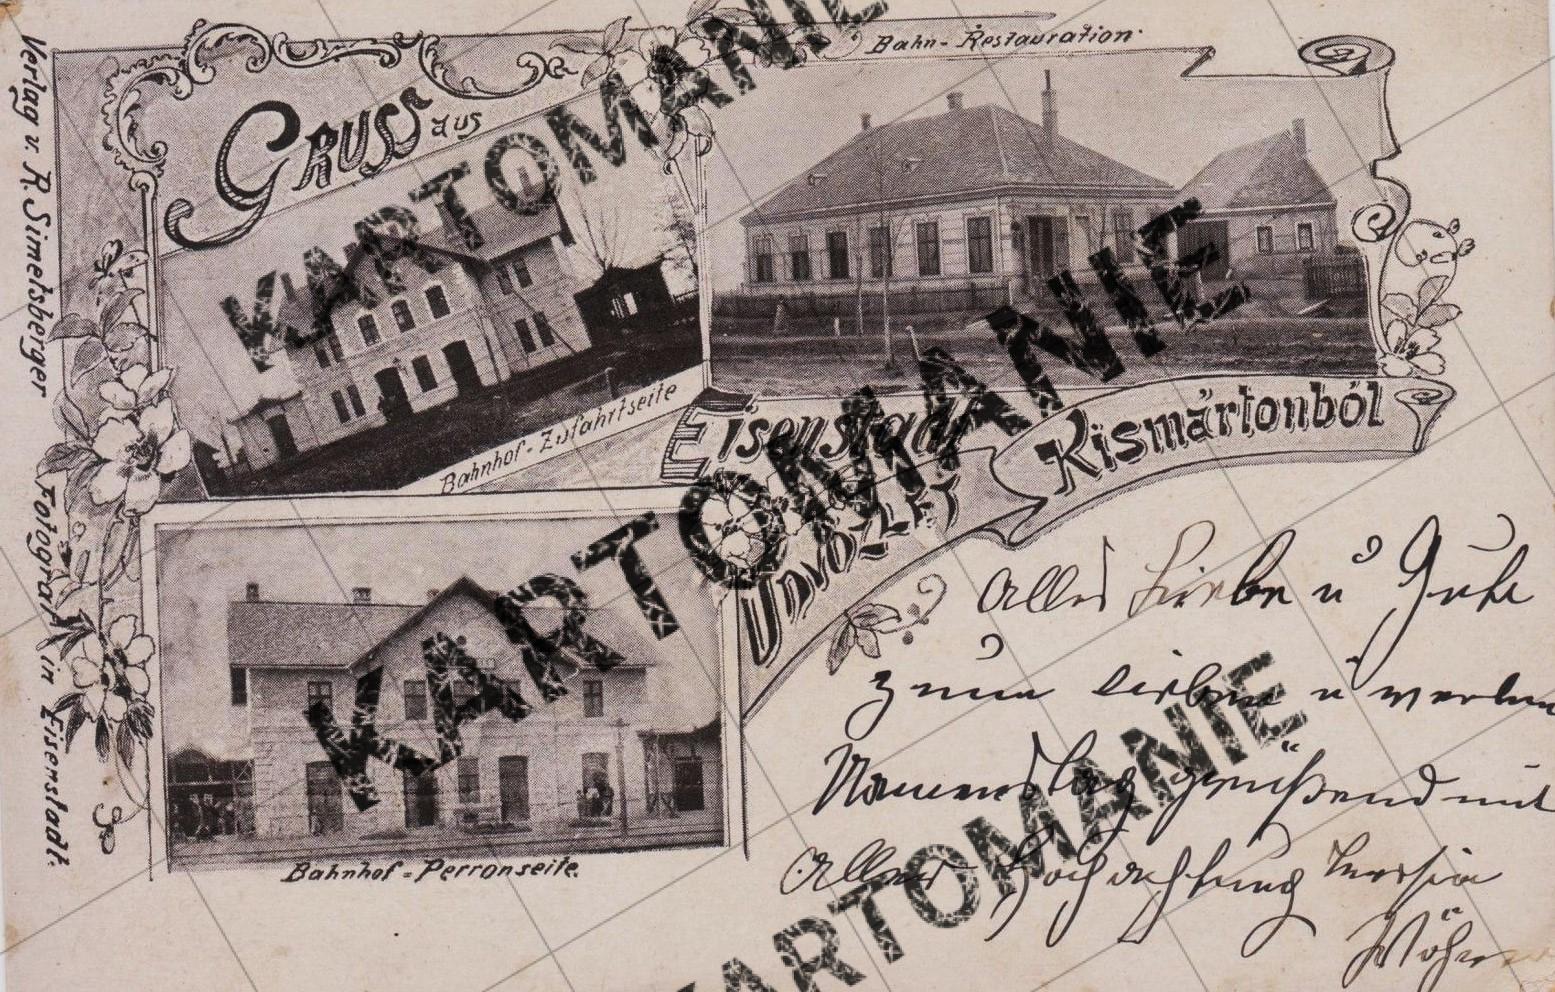 Gruss aus
Bahn-Restauration.
Bahnhof-Zufahrtseite
Eisenstadt
Üdvözlet Kismártonból
Bahnhof-Perronseite.
Verlag v. R. Simetsberger
Fotograf in Eisenstadt.
Alles Liebe u Gute
zum lieben u werten
Namenstag grüßend mit
aller Hochachtung
KARTOMANIE
KARTOMANIE
KARTOMANIE